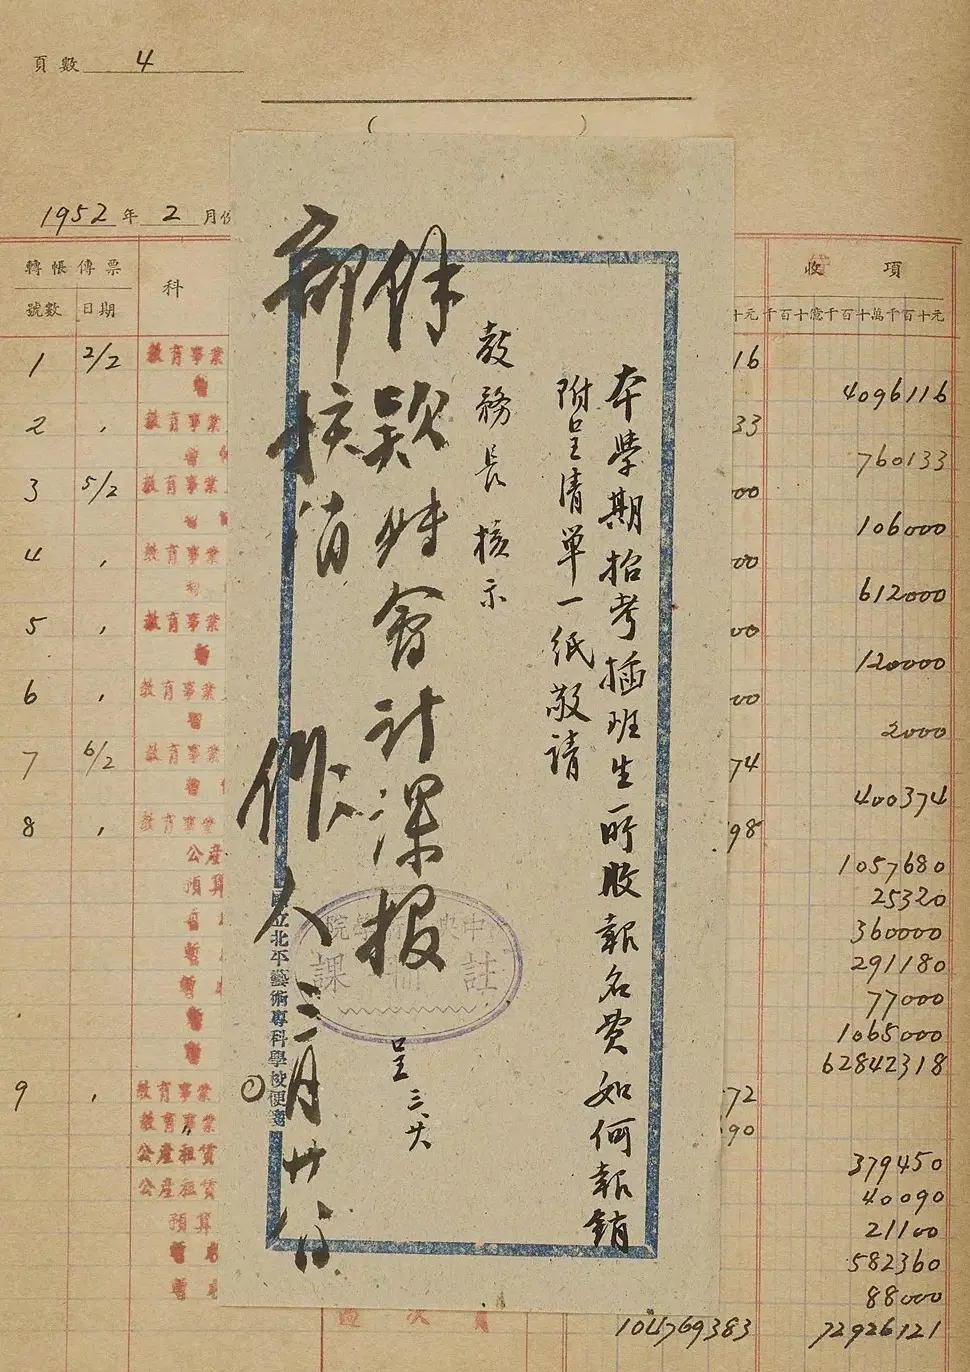 頁數 4
1952 年 2 月份
轉帳傳票
號數 日期
科
收項
十元
千百十億千百十萬千百十元
1 2/2 教育事業 16
4096116
2 , 教育事業 33
760133
3 5/2 教育事業 00
106000
4 , 教育事業 00
612000
5 , 教育事業 00
120000
6 , 教育事業 00
2000
7 6/2 教育事業 74
400374
8 , 教育事業 98
公產 1057680
預算 25320
360000
291180
77000
1065000
62842318
9 , 教育事業 72
教育事業 90
公產租賃 379450
公產租賃 40090
預算 21100
582360
88000
104769383 72926121
本學期招考插班生所收報名費如何報銷
附呈清單一紙敬請
教務長核示
註冊課
呈 三.廿六
餘款時會計課報
部核銷
作人三月廿八日
國立北平藝術專科學校便箋